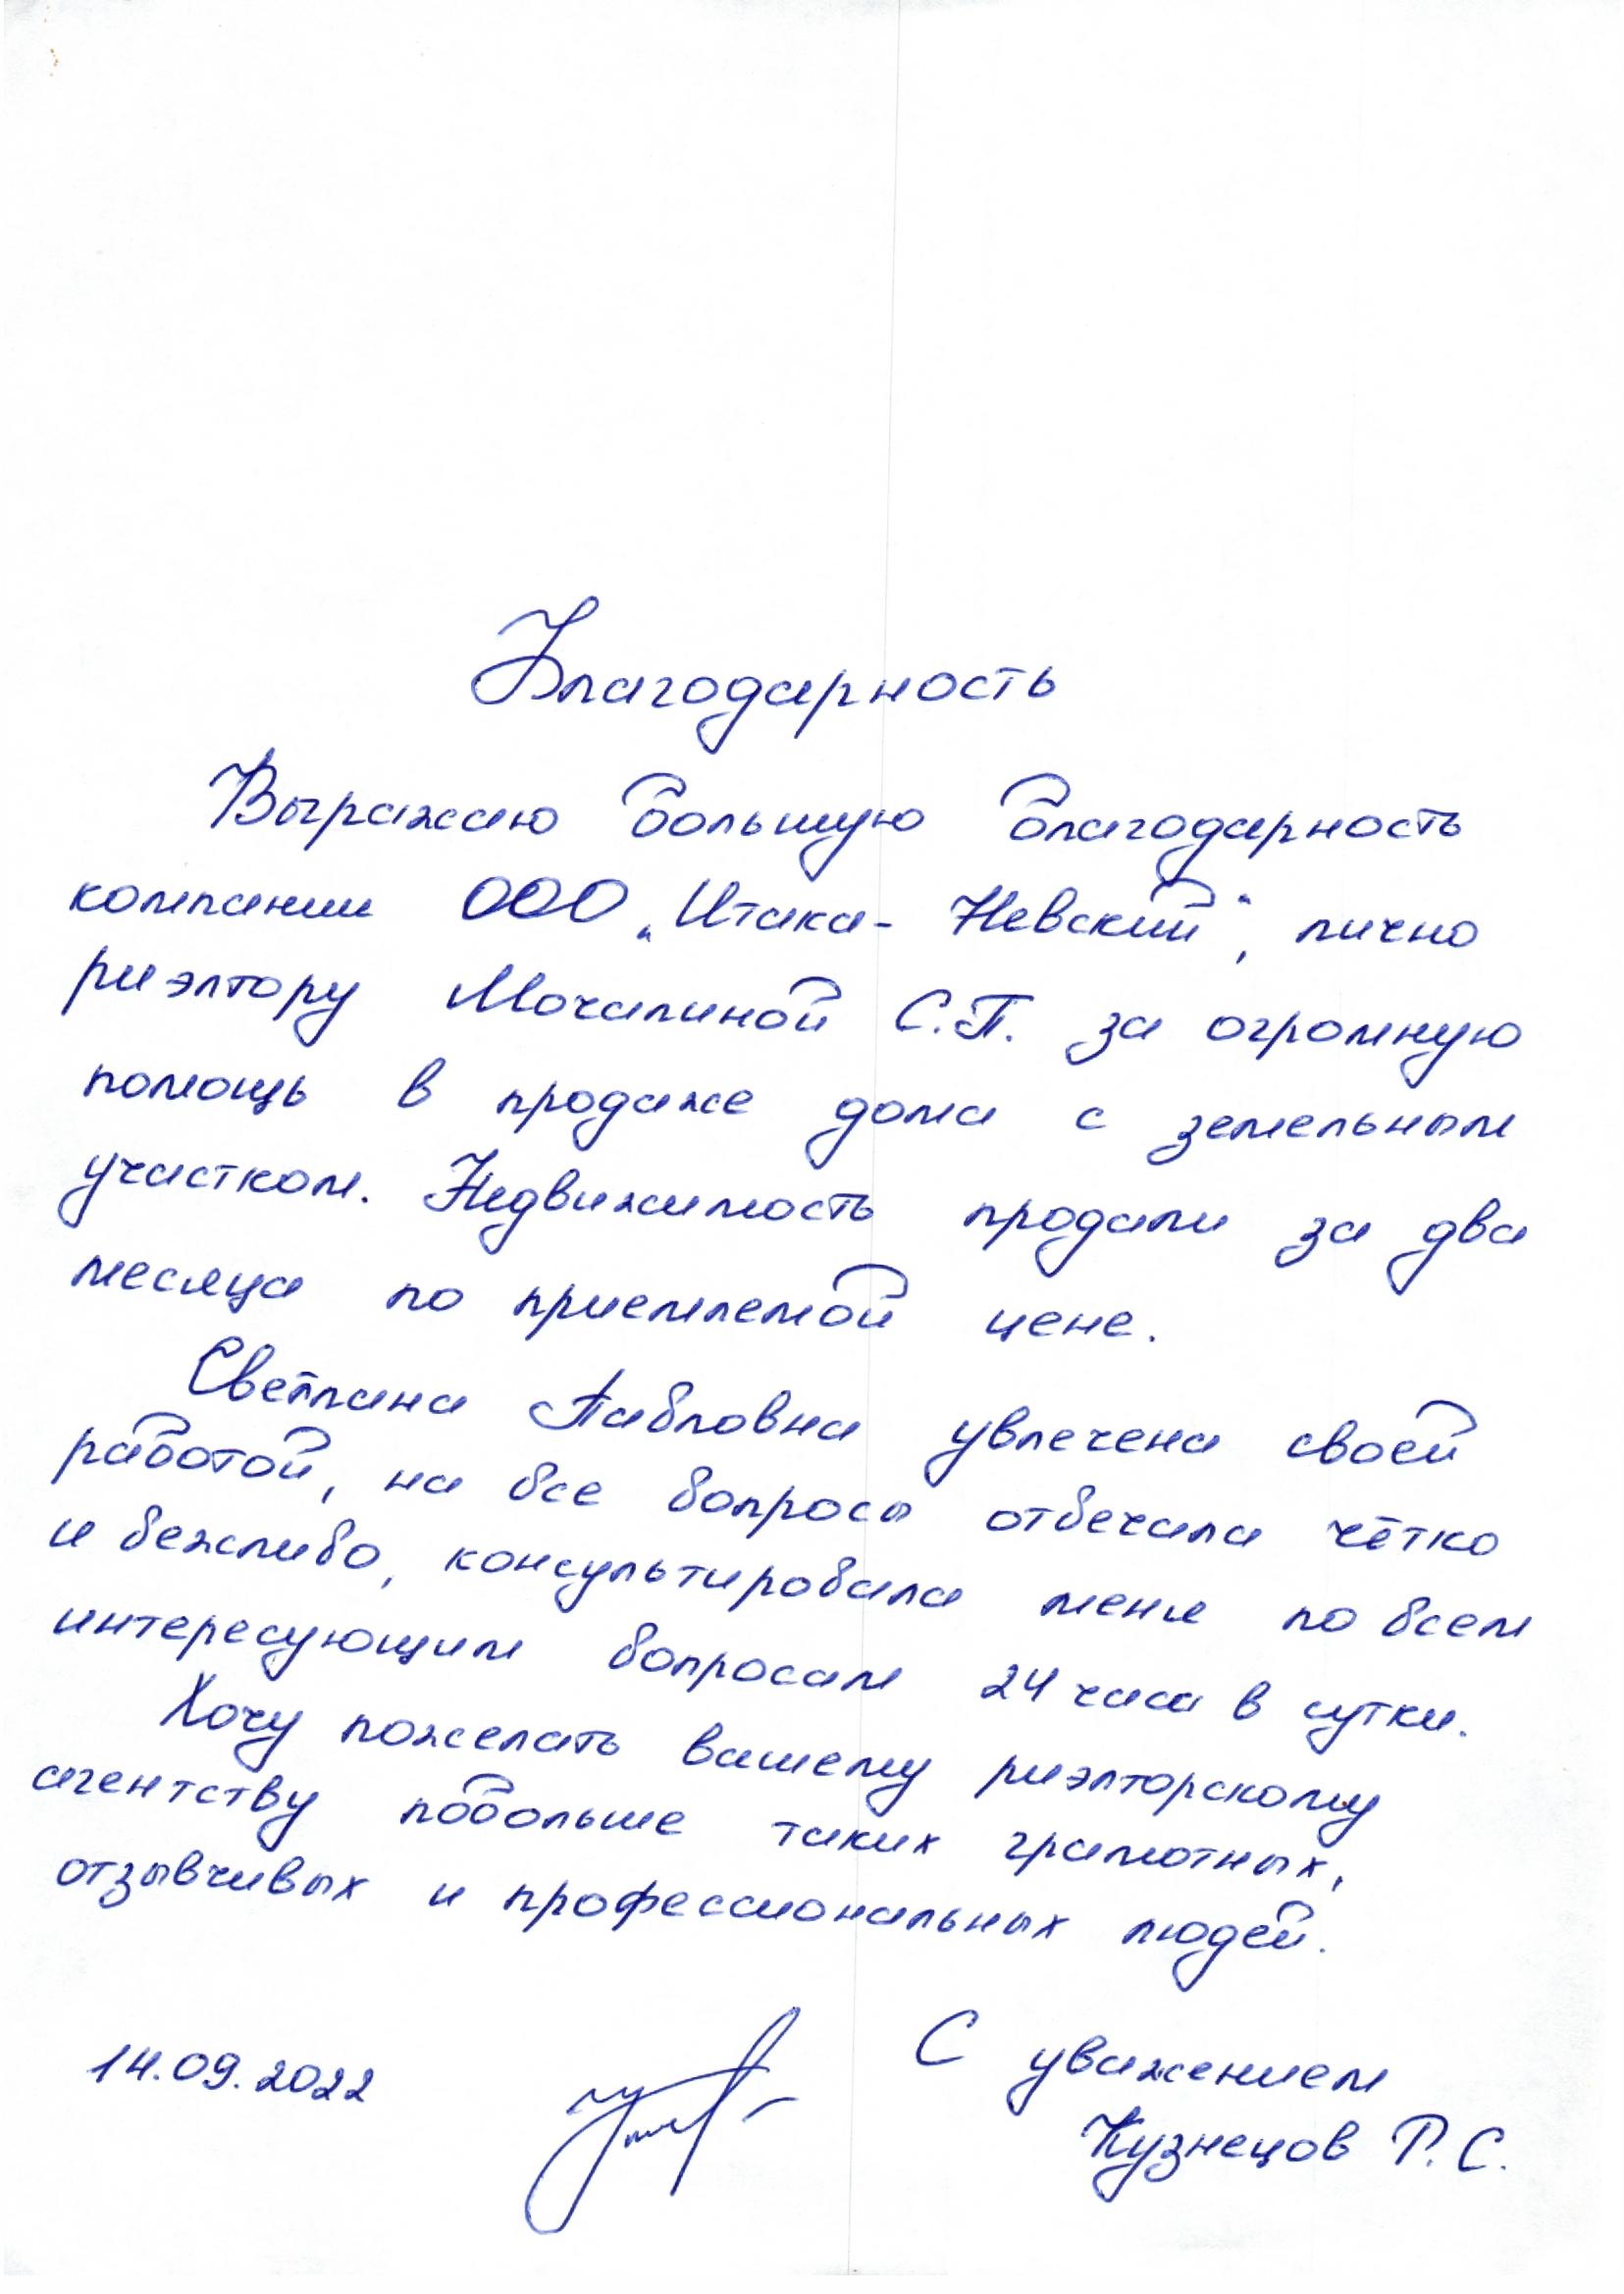 Благодарность
Выражаю большую благодарность
компании ООО „Итака-Невский“, лично
риэлтору Мочалиной С.П. за огромную
помощь в продаже дома с земельным
участком. Недвижимость продали за два
месяца по приемлемой цене.
Светлана Павловна увлечена своей
работой, на все вопросы отвечала чётко
и вежливо, консультировала меня по всем
интересующим вопросам 24 часа в сутки.
Хочу пожелать вашему риэлторскому
агентству побольше таких грамотных,
отзывчивых и профессиональных людей.
14.09.2022 С уважением
Кузнецов Р.С.